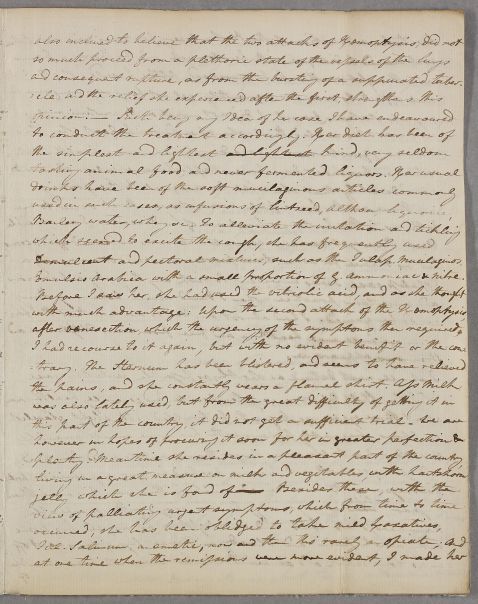 also inclined to believe that the two attacks of Hæmophysis, did not
so much proceed from a plethoric state of the vessels of the lungs
and consequent rupture, as from the bursting of a suppurated tuber-
cle, and the relief she experienced after the first, strengthens this
opinion. — Such being my Idea of he case, I have endeavoured
to conduct the treatment accordingly. Her diet has been of
the simplest and lightest and lightest kind, very seldom
tasting animal food and never fermented liquors. Her usual
drinks have been of the soft mucilaginous articles commonly
used in such cases, as infusions of lintseed, althaea, liquorice,
Barley water, whey, &c. To alleviate the irritation and tickling
which seemed to excite the cough, she has frequently used
Demulcent and pectoral mixtures, such as the Julep. mucilaginos,
Emulsio Arabica with a small proportion of G. ammoniac & nitre.
Before I saw her, she had used the vitriolic acid, and as she thought
with much advantage: Upon the second attack of the Hæmophysis
after venesection which the urgency of the symptoms then required,
I had recourse to it again, but with no evident benefit or the con
trary. The Sternum has been blistered, and seems to have relieved
the pains, and she constantly wears a flannel shirt. Ass Milk
was also lately used but from the great difficulty of getting it in
this part of the country, it did not get a sufficient trial. We are
however in hopes of procuring it soon for her in greater perfection &
plenty. Meantime she resides in a pleasant part of the country
living in a great measure on milk and vegetables, with hartshorn
jelly which she is fond of — Besides these, with the
view of palliating urgent symptoms, which from time to time
occurred, she has been obliged to take mild laxatives,
saline an emetic, now and then tho rarely an opiate. And
at one time when the remissions were more evident, I made her